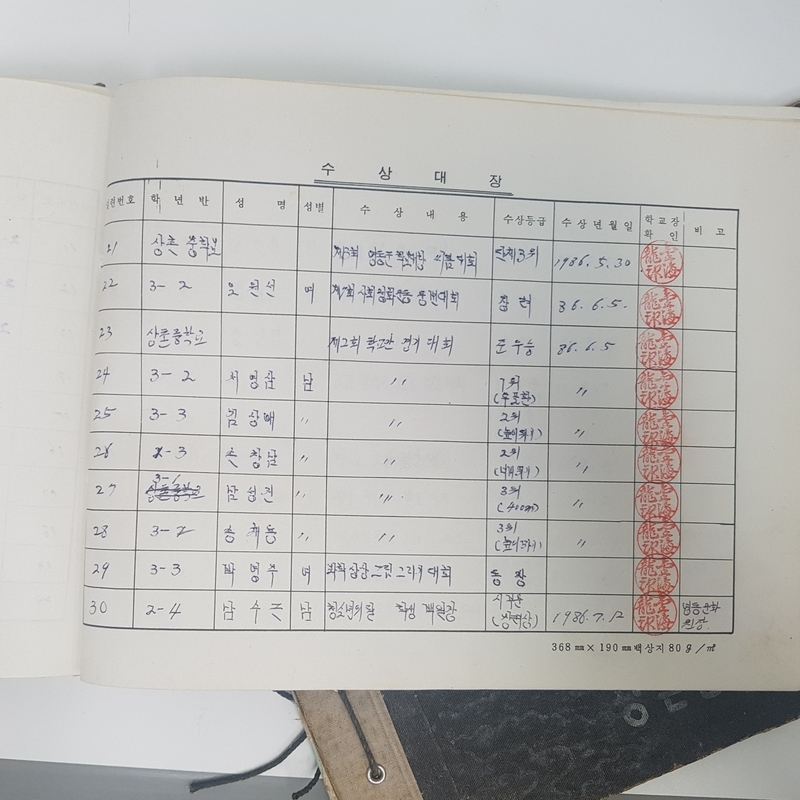 수 상 대 장
번호 학 년 반 성 명 성별 수 상 내 용 수상등급 수 상 년 월 일 학교장 확 인 비 고
21 상촌 중학교 제3회 씨름대회 단체3위 1986. 5. 30
22 3-2 여 제7회 장려 86. 6. 5.
23 상촌중학교 제2회 학교간 경기 대회 준우승 86. 6. 5
24 3-2 서영삼 남 〃 1위 〃
25 3-3 김상애 〃 〃 2위 (높이뛰기) 〃
26 2-3 손창남 〃 〃 2위 (넓이뛰기) 〃
27 3-1 남성진 〃 〃 3위 (400m) 〃
28 3-2 송재동 〃 〃 3위 (높이뛰기) 〃
29 3-3 박명주 여 과학상상그림그리기대회 동상
30 2-4 남수존 남 청소년의달 학생 백일장 시부문 (장려상) 1986. 7. 12 영동문화원장
368㎜×190㎜백상지80g/㎡